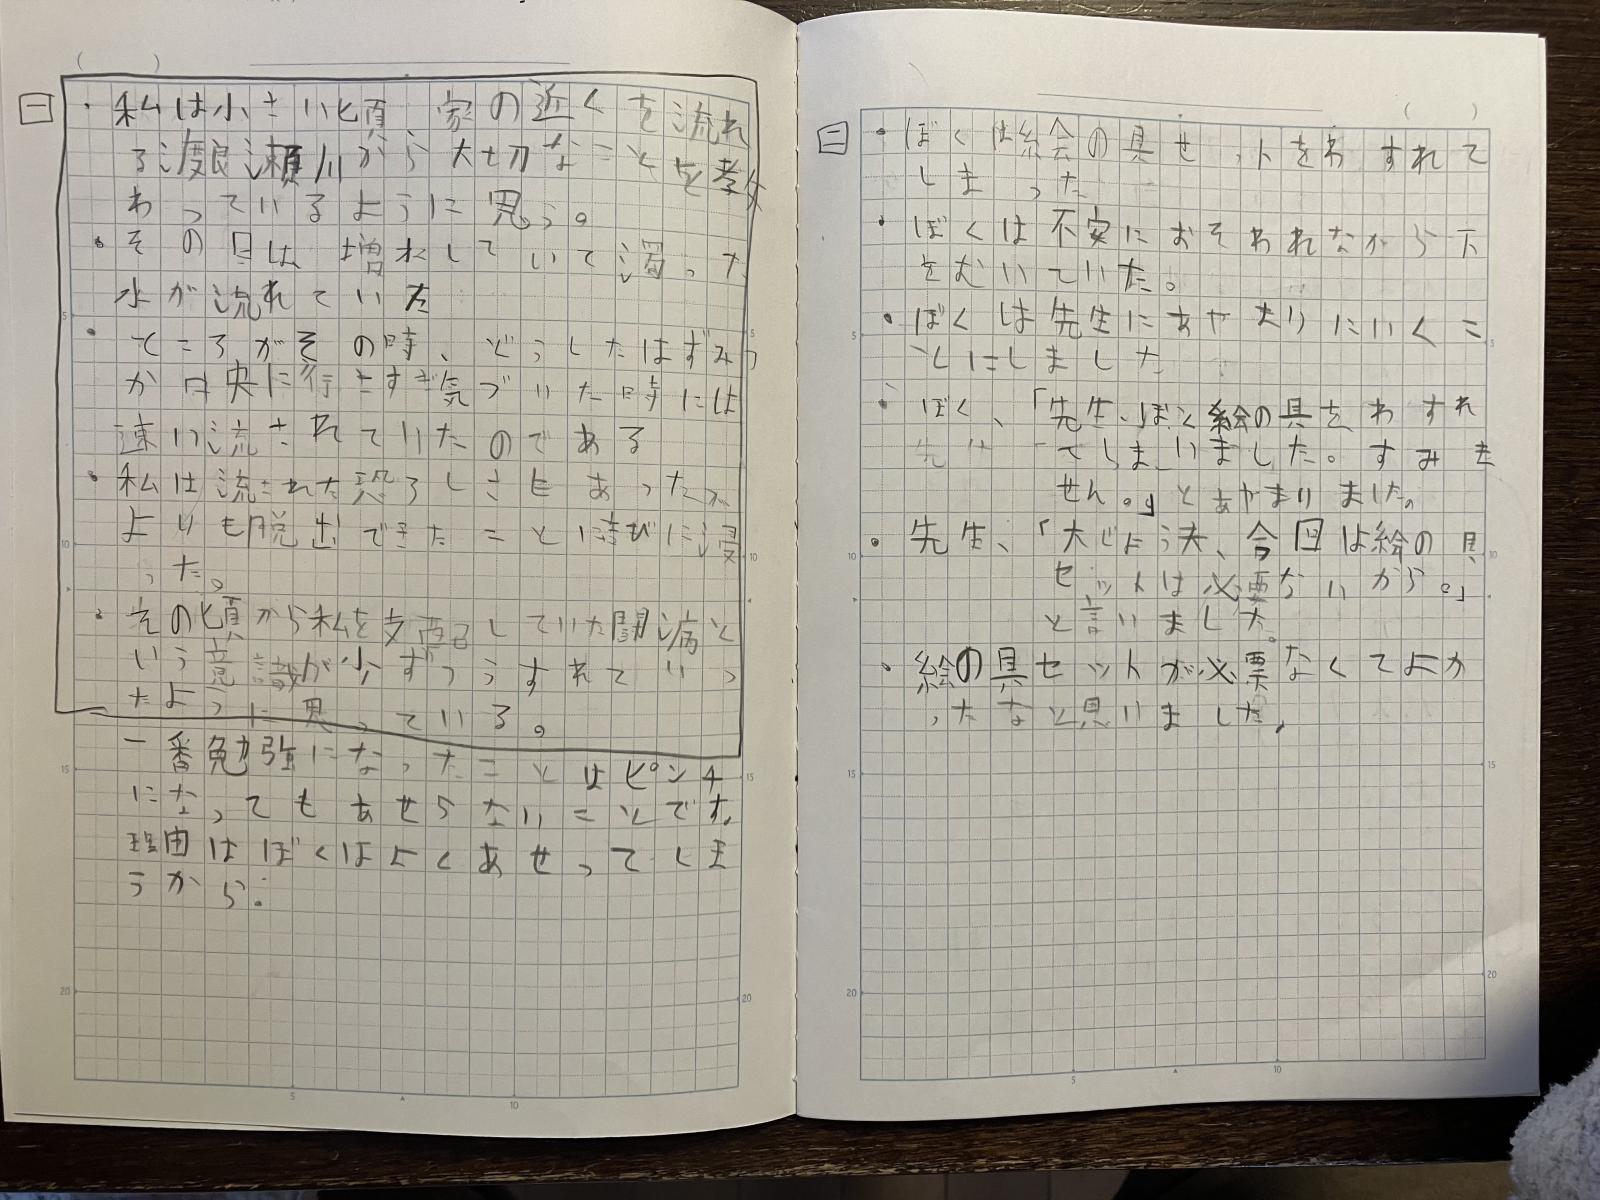 一
・私は小さい頃、家の近くを流れ
る渡良瀬川から大切なことを教
わっているように思う。
・その日は、増水していて濁った
水が流れていた
・ところがその時、どうしたはずみ
か中央に行きすぎ気づいた時には
速い流されていたのである
・私は流された恐ろしさもあったが
よりも脱出できたことに喜びに浸
った。
・その頃から私を支配していた闘病と
いう意識が少ずつうすれていっ
たように思っている。
一番勉強になったことはピンチ
になってもあせらないことです。
理由はぼくはよくあせってしま
うから。
二
・ぼくは絵会の具セットをわすれて
しまった
・ぼくは不安におそわれながら下
をむいていた。
・ぼくは先生にあやまりにいくこ
とにしました
・ぼく、「先生、ぼく絵の具をわすれ
てしまいました。すみま
せん。」とあやまりました。
・先生、「大じょう夫、今回は絵の具
セットは必要ないから。」
と言いました。
・絵の具セットが必票なくてよか
ったなと思いました。